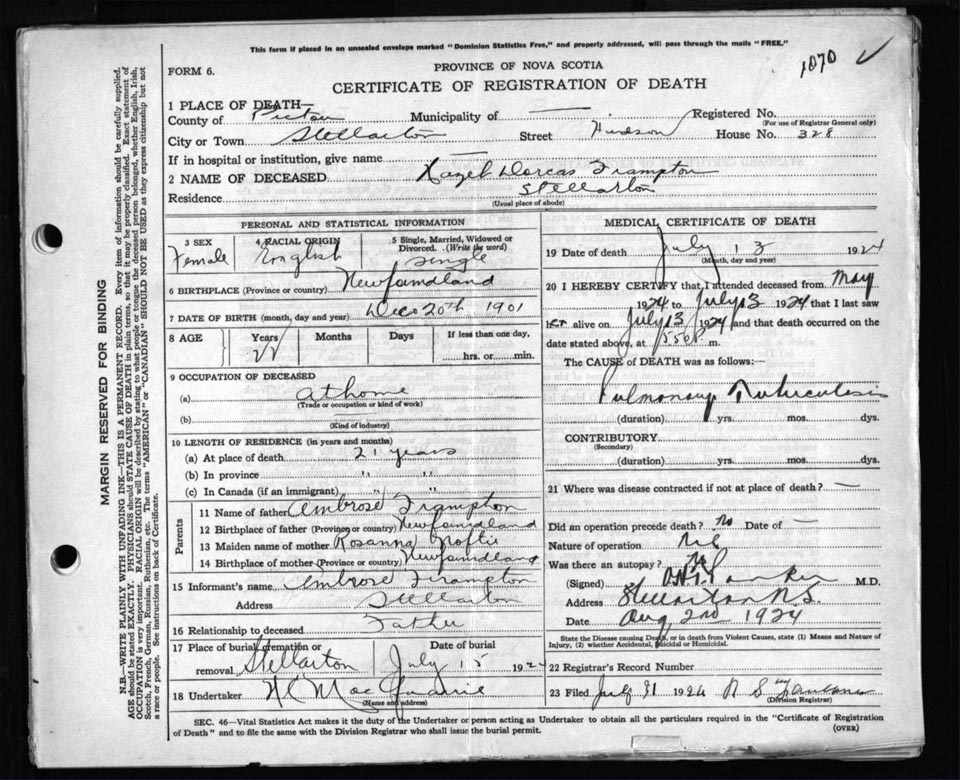 This form if placed in an unsealed envelope marked "Dominion Statistics Free," and properly addressed, will pass through the mails "FREE."
1070
FORM 6.
PROVINCE OF NOVA SCOTIA
CERTIFICATE OF REGISTRATION OF DEATH
1 PLACE OF DEATH—
County of Pictou Municipality of — Registered No.
(For use of Registrar General only)
City or Town Stellarton Street Hudson House No. 328
If in hospital or institution, give name —
2 NAME OF DECEASED Hazel Dorcas Frampton
Residence Stellarton
(Usual place of abode)
PERSONAL AND STATISTICAL INFORMATION
3 SEX Female
4 RACIAL ORIGIN English
5 Single, Married, Widowed or Divorced. (Write the word) Single
6 BIRTHPLACE (Province or country) Newfoundland
7 DATE OF BIRTH (month, day and year) Dec 20th 1901
8 AGE Years 22 Months Days If less than one day, hrs. or min.
9 OCCUPATION OF DECEASED
(a) at home
(Trade or occupation or kind of work)
(b)
(Kind of industry)
10 LENGTH OF RESIDENCE (in years and months)
(a) At place of death 21 years
(b) In province " "
(c) In Canada (if an immigrant) " "
Parents
11 Name of father Ambrose Frampton
12 Birthplace of father (Province or country) Newfoundland
13 Maiden name of mother Rosanna
14 Birthplace of mother (Province or country) Newfoundland
15 Informant's name Ambrose Frampton
Address Stellarton
16 Relationship to deceased Father
17 Place of burial, cremation or removal Stellarton Date of burial July 15 1924
18 Undertaker
(Name and address)
MEDICAL CERTIFICATE OF DEATH
19 Date of death July 13 1924
(Month, day and year)
20 I HEREBY CERTIFY that I attended deceased from May
1924 to July 13 1924 that I last saw
her alive on July 13 1924 and that death occurred on the
date stated above, at m.
The CAUSE of DEATH was as follows:—
Pulmonary Tuberculosis
(duration) yrs. mos. dys.
CONTRIBUTORY
(Secondary)
(duration) yrs. mos. dys.
21 Where was disease contracted if not at place of death? —
Did an operation precede death? No Date of —
Nature of operation
Was there an autopsy? No
(Signed) M.D.
Address Stellarton N.S.
Date Aug 2nd 1924
State the Disease causing Death, or in death from Violent Causes, state (1) Means and Nature of
Injury, (2) whether Accidental, Suicidal or Homicidal.
22 Registrar's Record Number
23 Filed July 31 1924
(Division Registrar)
SEC. 46—Vital Statistics Act makes it the duty of the Undertaker or person acting as Undertaker to obtain all the particulars required in the "Certificate of Registration
of Death" and to file the same with the Division Registrar who shall issue the burial permit.
(OVER)
MARGIN RESERVED FOR BINDING
N.B.—WRITE PLAINLY WITH UNFADING INK—THIS IS A PERMANENT RECORD. Every item of information should be carefully supplied.
AGE should be stated EXACTLY. PHYSICIANS should STATE CAUSE OF DEATH in plain terms, so that it may be properly classified. Exact statement of
OCCUPATION is very important. RACIAL ORIGIN will be described by stating to what people or tongue the deceased person belonged, whether English, Irish,
Scotch, French, German, Russian, Ruthenian, etc. The terms "AMERICAN" or "CANADIAN" SHOULD NOT BE USED as they express citizenship but not
a race or people. See instructions on back of Certificate.